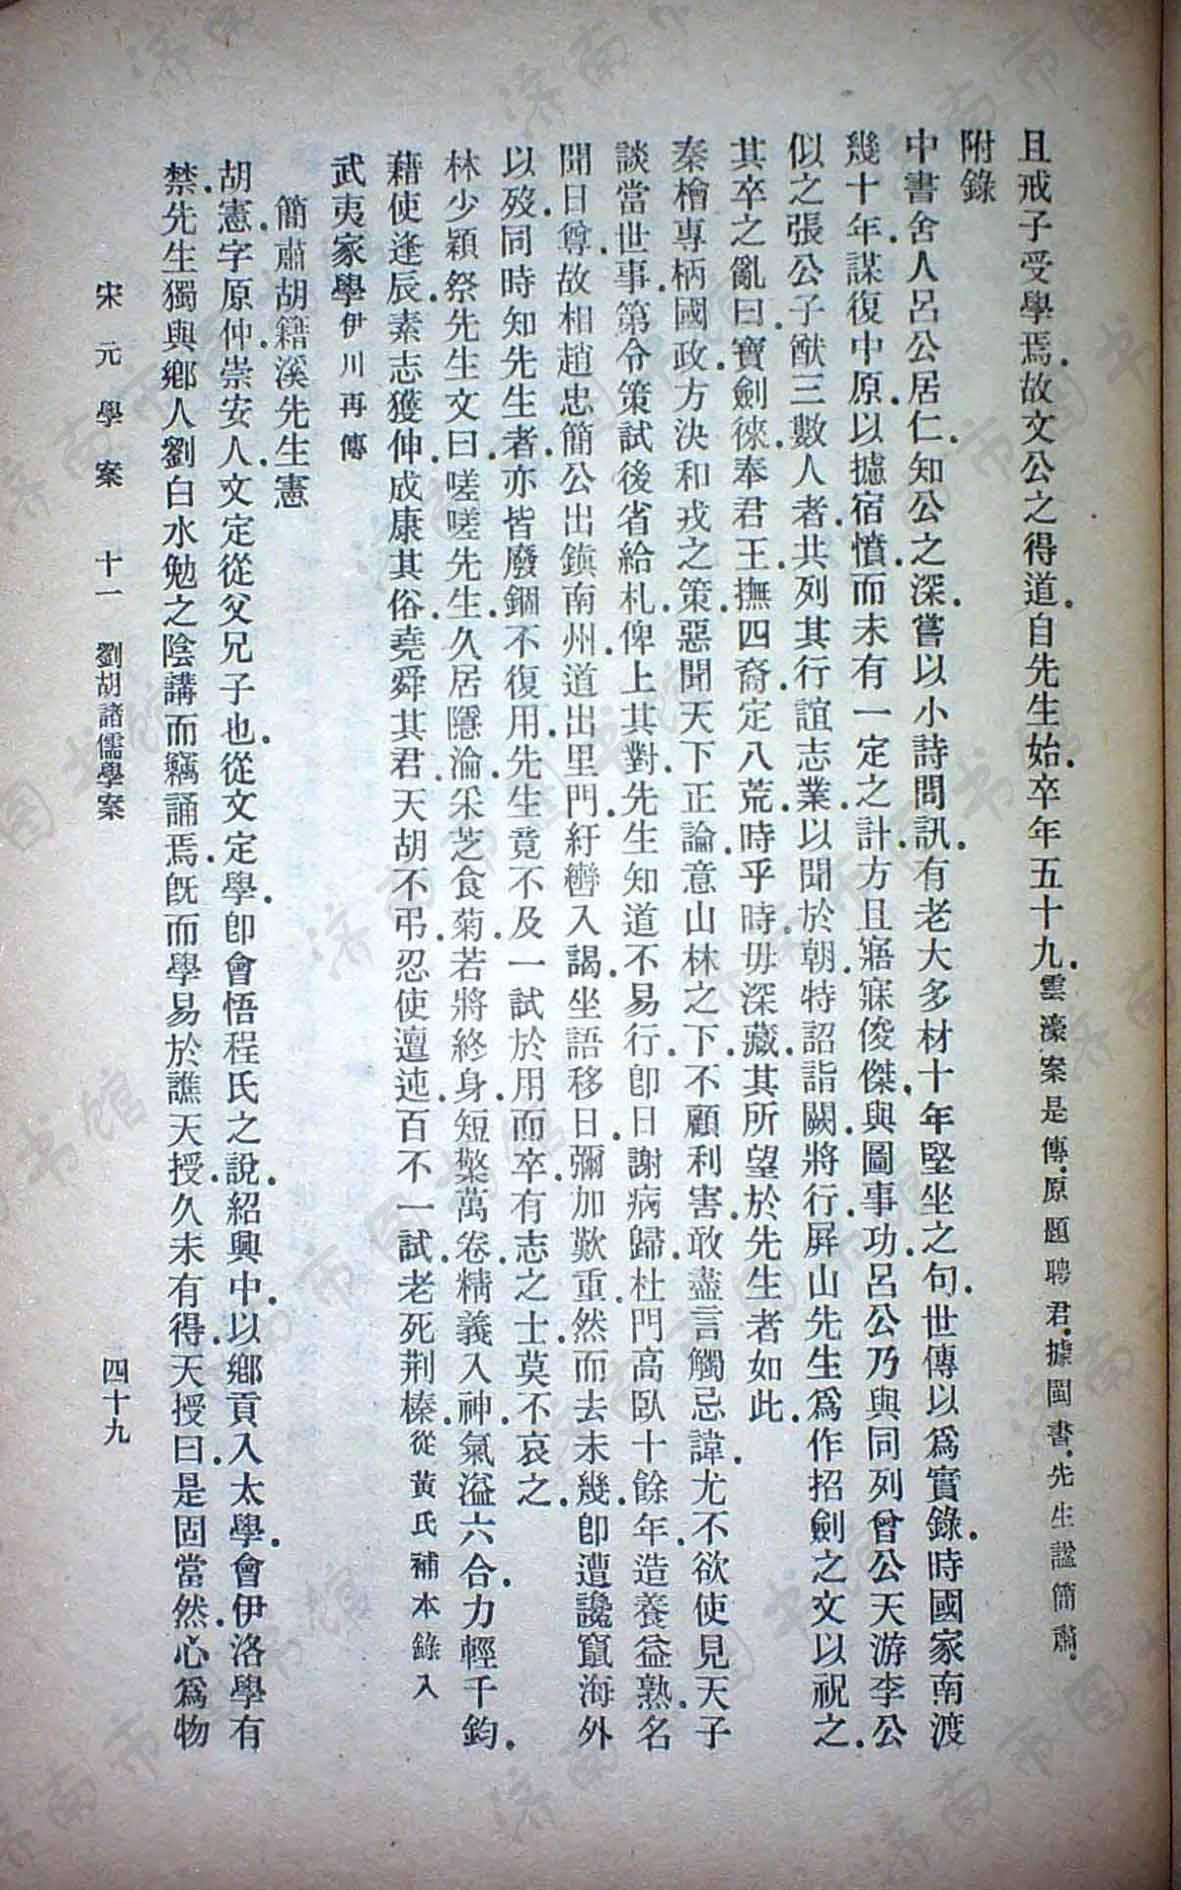 且戒子受學焉.故文公之得道.自先生始.卒年五十九.雲濠案是傳.原題聘君.據閩書.先生諡簡肅.
附錄
中書舍人呂公居仁.知公之深.嘗以小詩問訊.有老大多材.十年堅坐之句.世傳以爲實錄.時國家南渡
幾十年.謀復中原.以攄宿憤.而未有一定之計.方且寤寐俊傑.與圖事功.呂公乃與同列曾公天游李公
似之張公子猷三數人者.共列其行誼志業.以聞於朝.特詔詣闕.將行.屏山先生爲作招劍之文以祝之.
其卒之亂曰.寶劍徠.奉君王.撫四裔.定八荒.時乎時.毋深藏.其所望於先生者如此.
秦檜專柄國政.方決和戎之策.惡聞天下正論.意山林之下.不顧利害.敢盡言觸忌諱.尤不欲使見天子
談當世事.第令策試後省給札.俾上其對.先生知道不易行.卽日謝病歸.杜門高臥十餘年.造養益熟.名
聞日尊.故相趙忠簡公出鎭南州.道出里門.紆轡入謁.坐語移日.彌加歎重.然而去未幾.卽遭讒竄海外
以歿.同時知先生者.亦皆廢錮不復用.先生竟不及一試於用而卒.有志之士.莫不哀之.
林少穎祭先生文曰.嗟嗟先生.久居隱淪.采芝食菊.若將終身.短檠萬卷.精義入神.氣溢六合.力輕千鈞.
藉使逢辰.素志獲伸.成康其俗.堯舜其君.天胡不弔.忍使邅迍.百不一試.老死荆榛.從黃氏補本錄入
武夷家學伊川再傳
簡肅胡籍溪先生憲
胡憲.字原仲.崇安人.文定從父兄子也.從文定學.卽會悟程氏之說.紹興中.以鄉貢入太學.會伊洛學有
禁.先生獨與鄉人劉白水勉之陰講而竊誦焉.旣而學易於譙天授.久未有得.天授曰.是固當然.心爲物
宋元學案 十一 劉胡諸儒學案 四十九